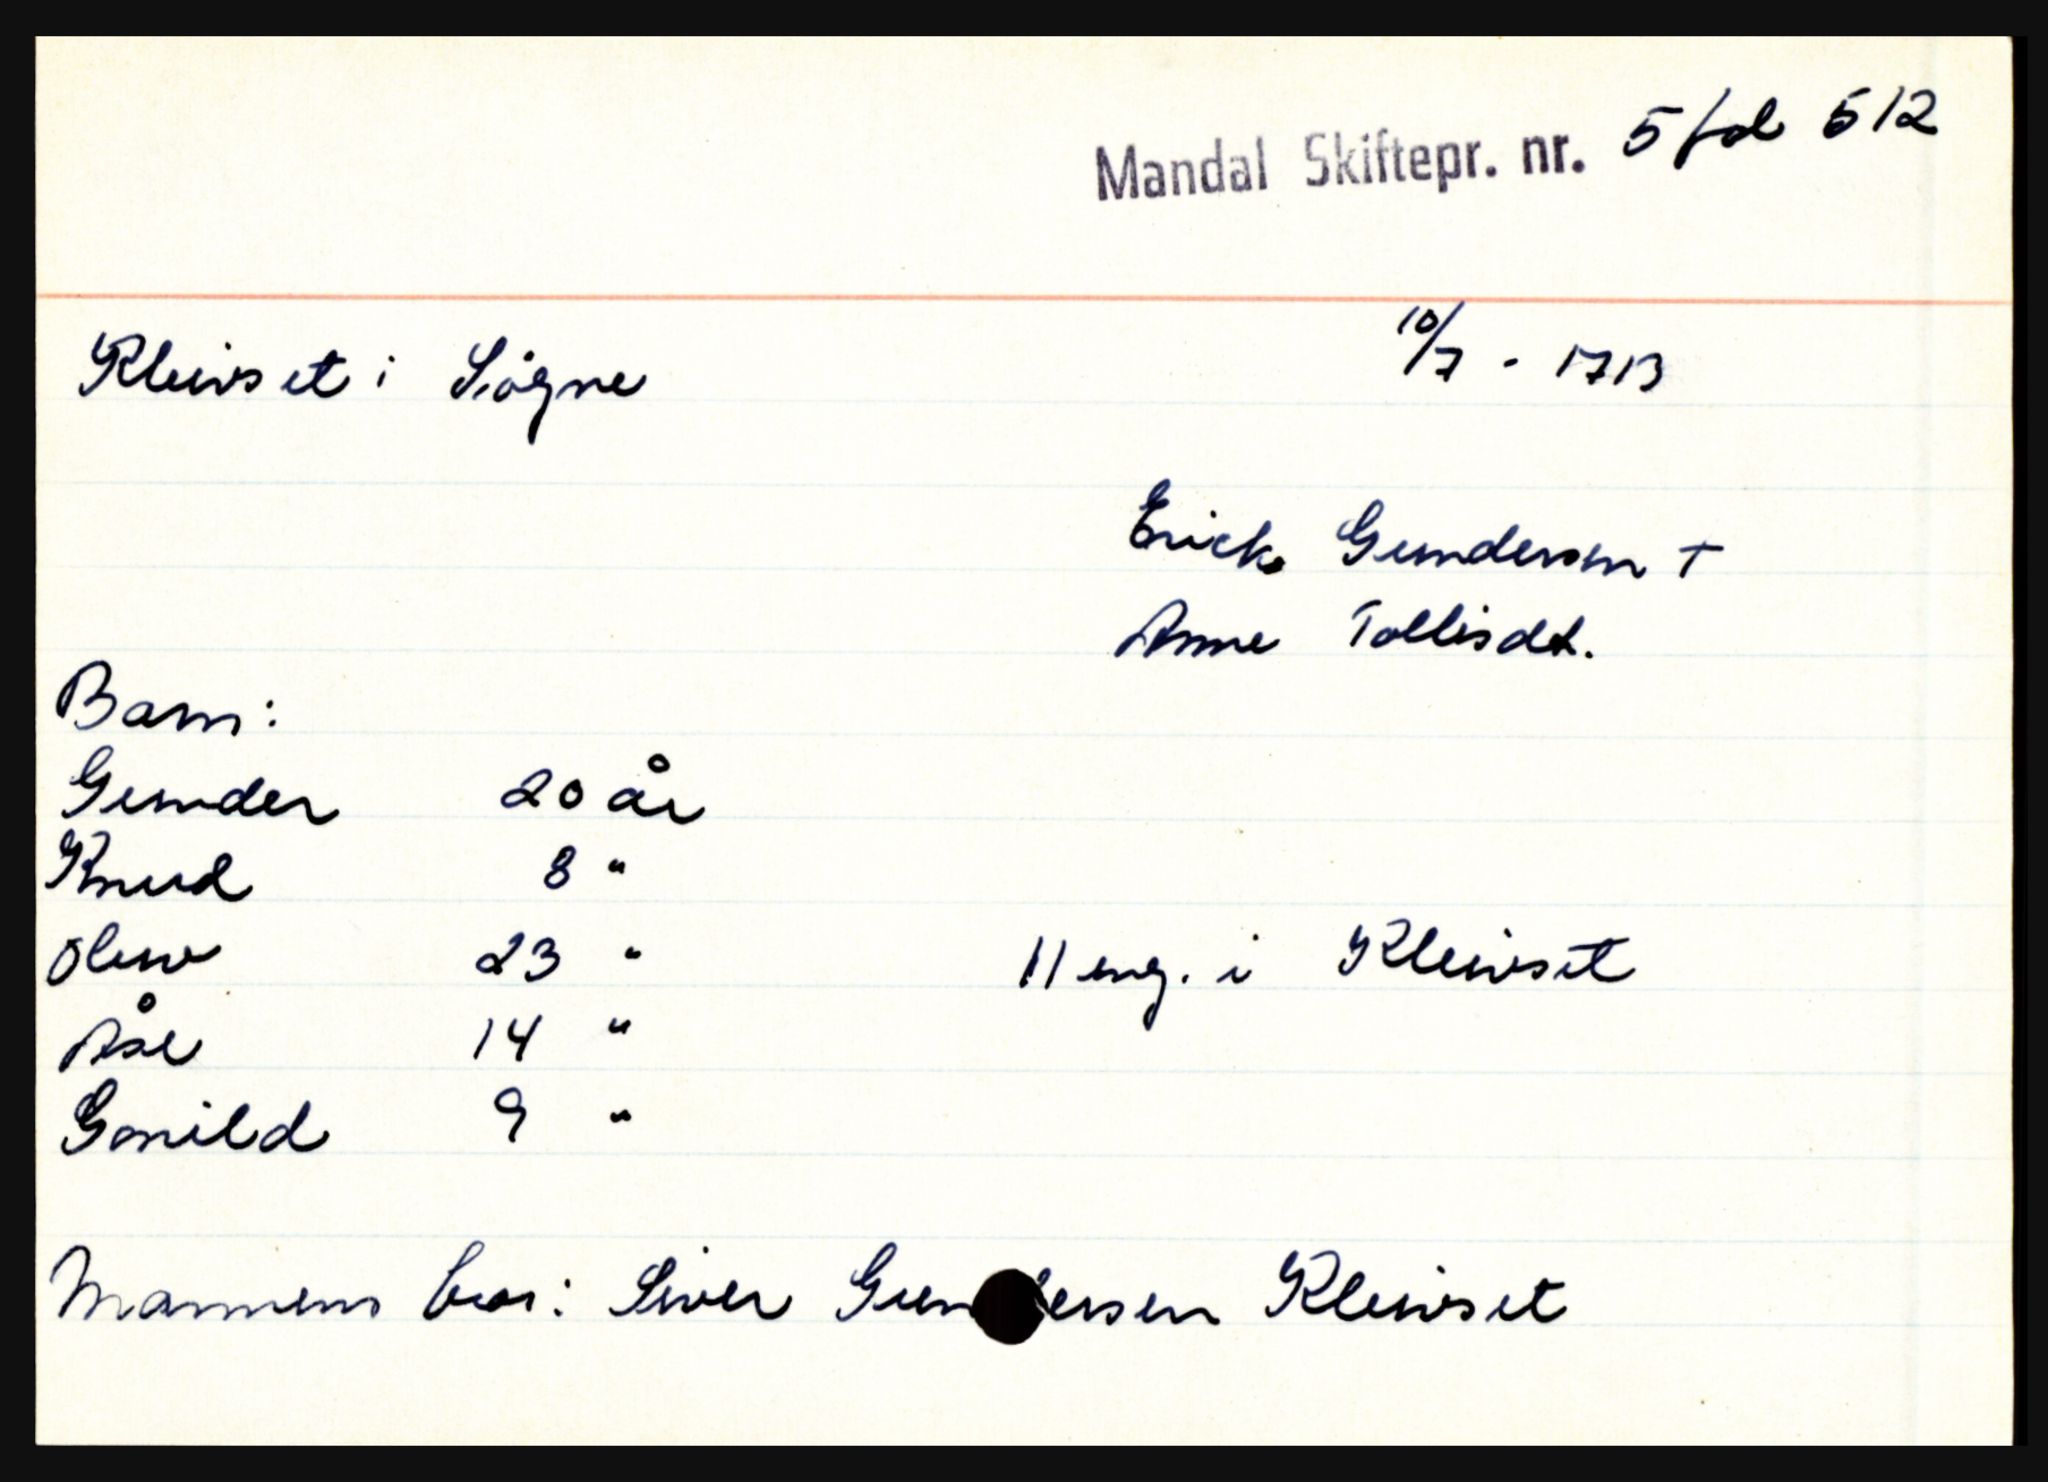 Mandal Skiftepr. nr. 5 fol 512
Kleivset i Søgne 10/7 - 1713
Erick Gundersen †
Anne Tollisdt.
Barn:
Gunder 20 år
Knud 8 "
Olew 23 " 11 eng. i Kleivset
Åse 14 "
Gonild 9 "
Mannens bror: Siver Gundersen Kleivset